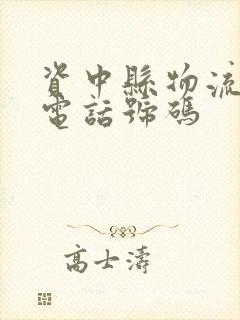 資中縣物流
電話號碼
高士濤